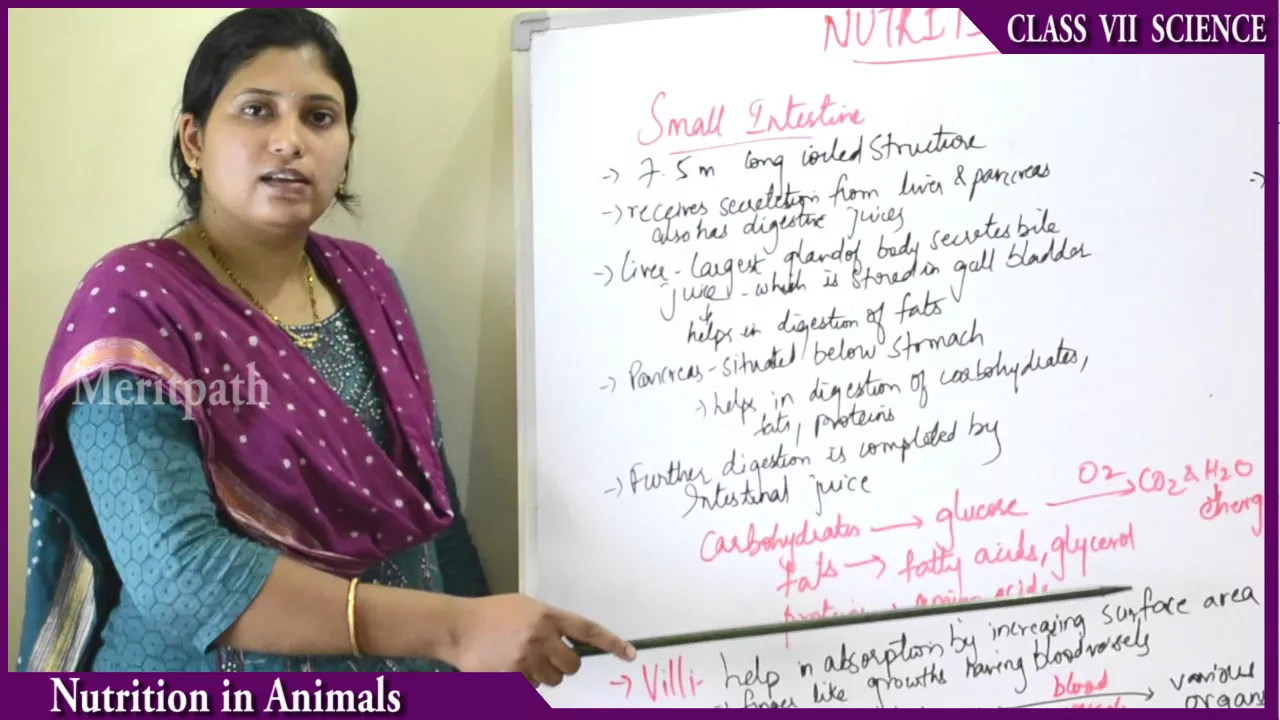 CLASS VII SCIENCE
NUTRITI
Small Intestine
-> 7.5m long coiled structure
-> receives secretetion from liver & pancreas
also has digestive juices
-> Liver - largest gland of body secretes bile
juice - which is stored in gall bladder
helps in digestion of fats
-> Pancreas - situated below stomach
-> helps in digestion of carbohydrates,
fats, proteins
-> Further digestion is completed by
Intestinal juice
Carbohydrates -> glucose O2 -> CO2 & H2O
fats -> fatty acids, glycerol
-> Villi - help in absorption by increasing surface area
-> finger like growths having bloodvessels
blood -> various
organs
Meritpath
Nutrition in Animals